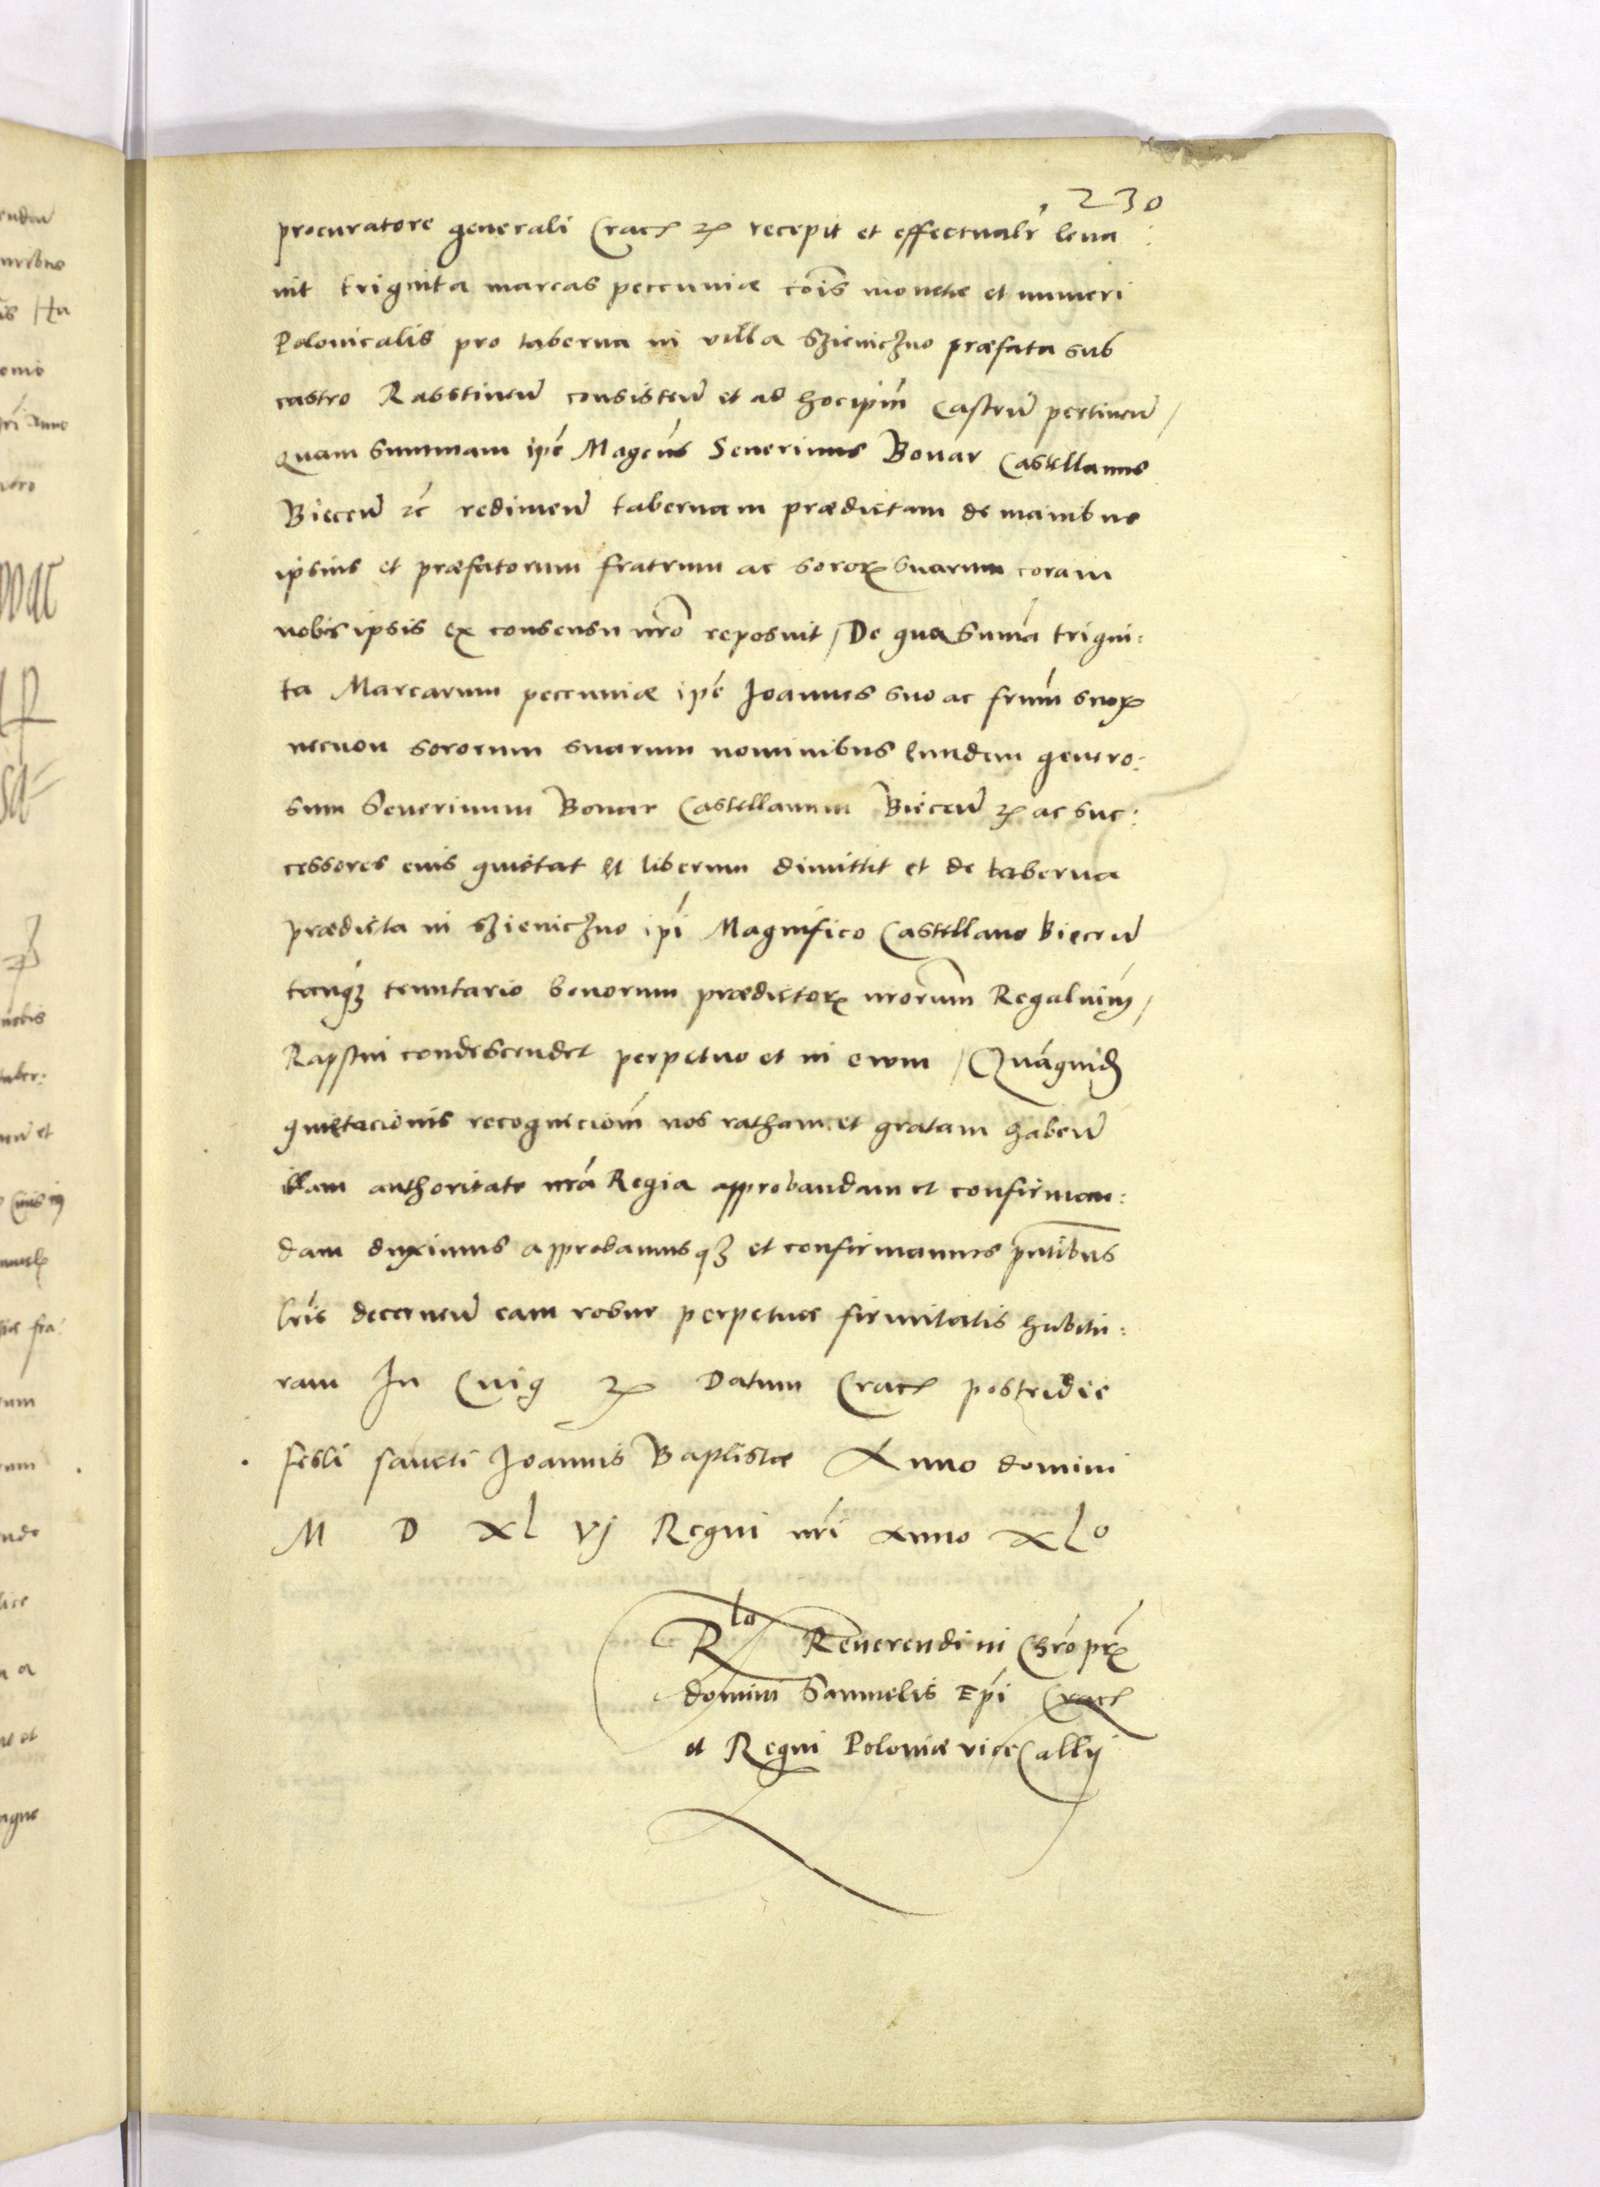 230
procuratore generali Crac etc recepit et effectualr leva:
vit triginta marcas peccuniæ cois monetæ et numeri
Polonicalis pro taberna in villa Szieniczno præfata sub
castro Rabstineñ consisteñ et ad hocipm Castrũ pertineñ /
Quam summam ipe Magcus Severinus Bonar Castellanus
Bieceñ etc redimeñ tabernam prædictam de manibus
ipsius et præfatorum fratrum ac soror suarum coram
nobis ipsis ex consensu nro reposuit / De qua suma trigin:
ta Marcarum peccuniæ ipe Joannes suo ac frum suor
necnon sororum suarum nominibus Eundem genero:
sum Severinum Bonar Castellanum Bieceñ etc ac suc:
cessores eius quietat et liberum dimittit et de taberna
prædicta in Szieniczno ipi Magnifico Castellano Bieceñ
tanq tenutario bonorum prædictor nrorum Regalium /
Rapstin condescendet perpetuo et in evum / Quāquid
quietacionis recognicionem nos ratham et gratam habeñ
illam authoritate nra Regia approbandam et confirman:
dam duximus approbamusq et confirmamus pntibus
lris decerneñ eam robur perpetuæ firmitatis habitu:
ram In Cuig etc Datum Crac postridie
festi sancti Joannis Baptistæ Anno domini
M D XL vj Regni nri Anno XLo
Rlo Reverendi in Chro prs
domini Samuelis Epi Crac
et Regni Poloniæ viceCallij